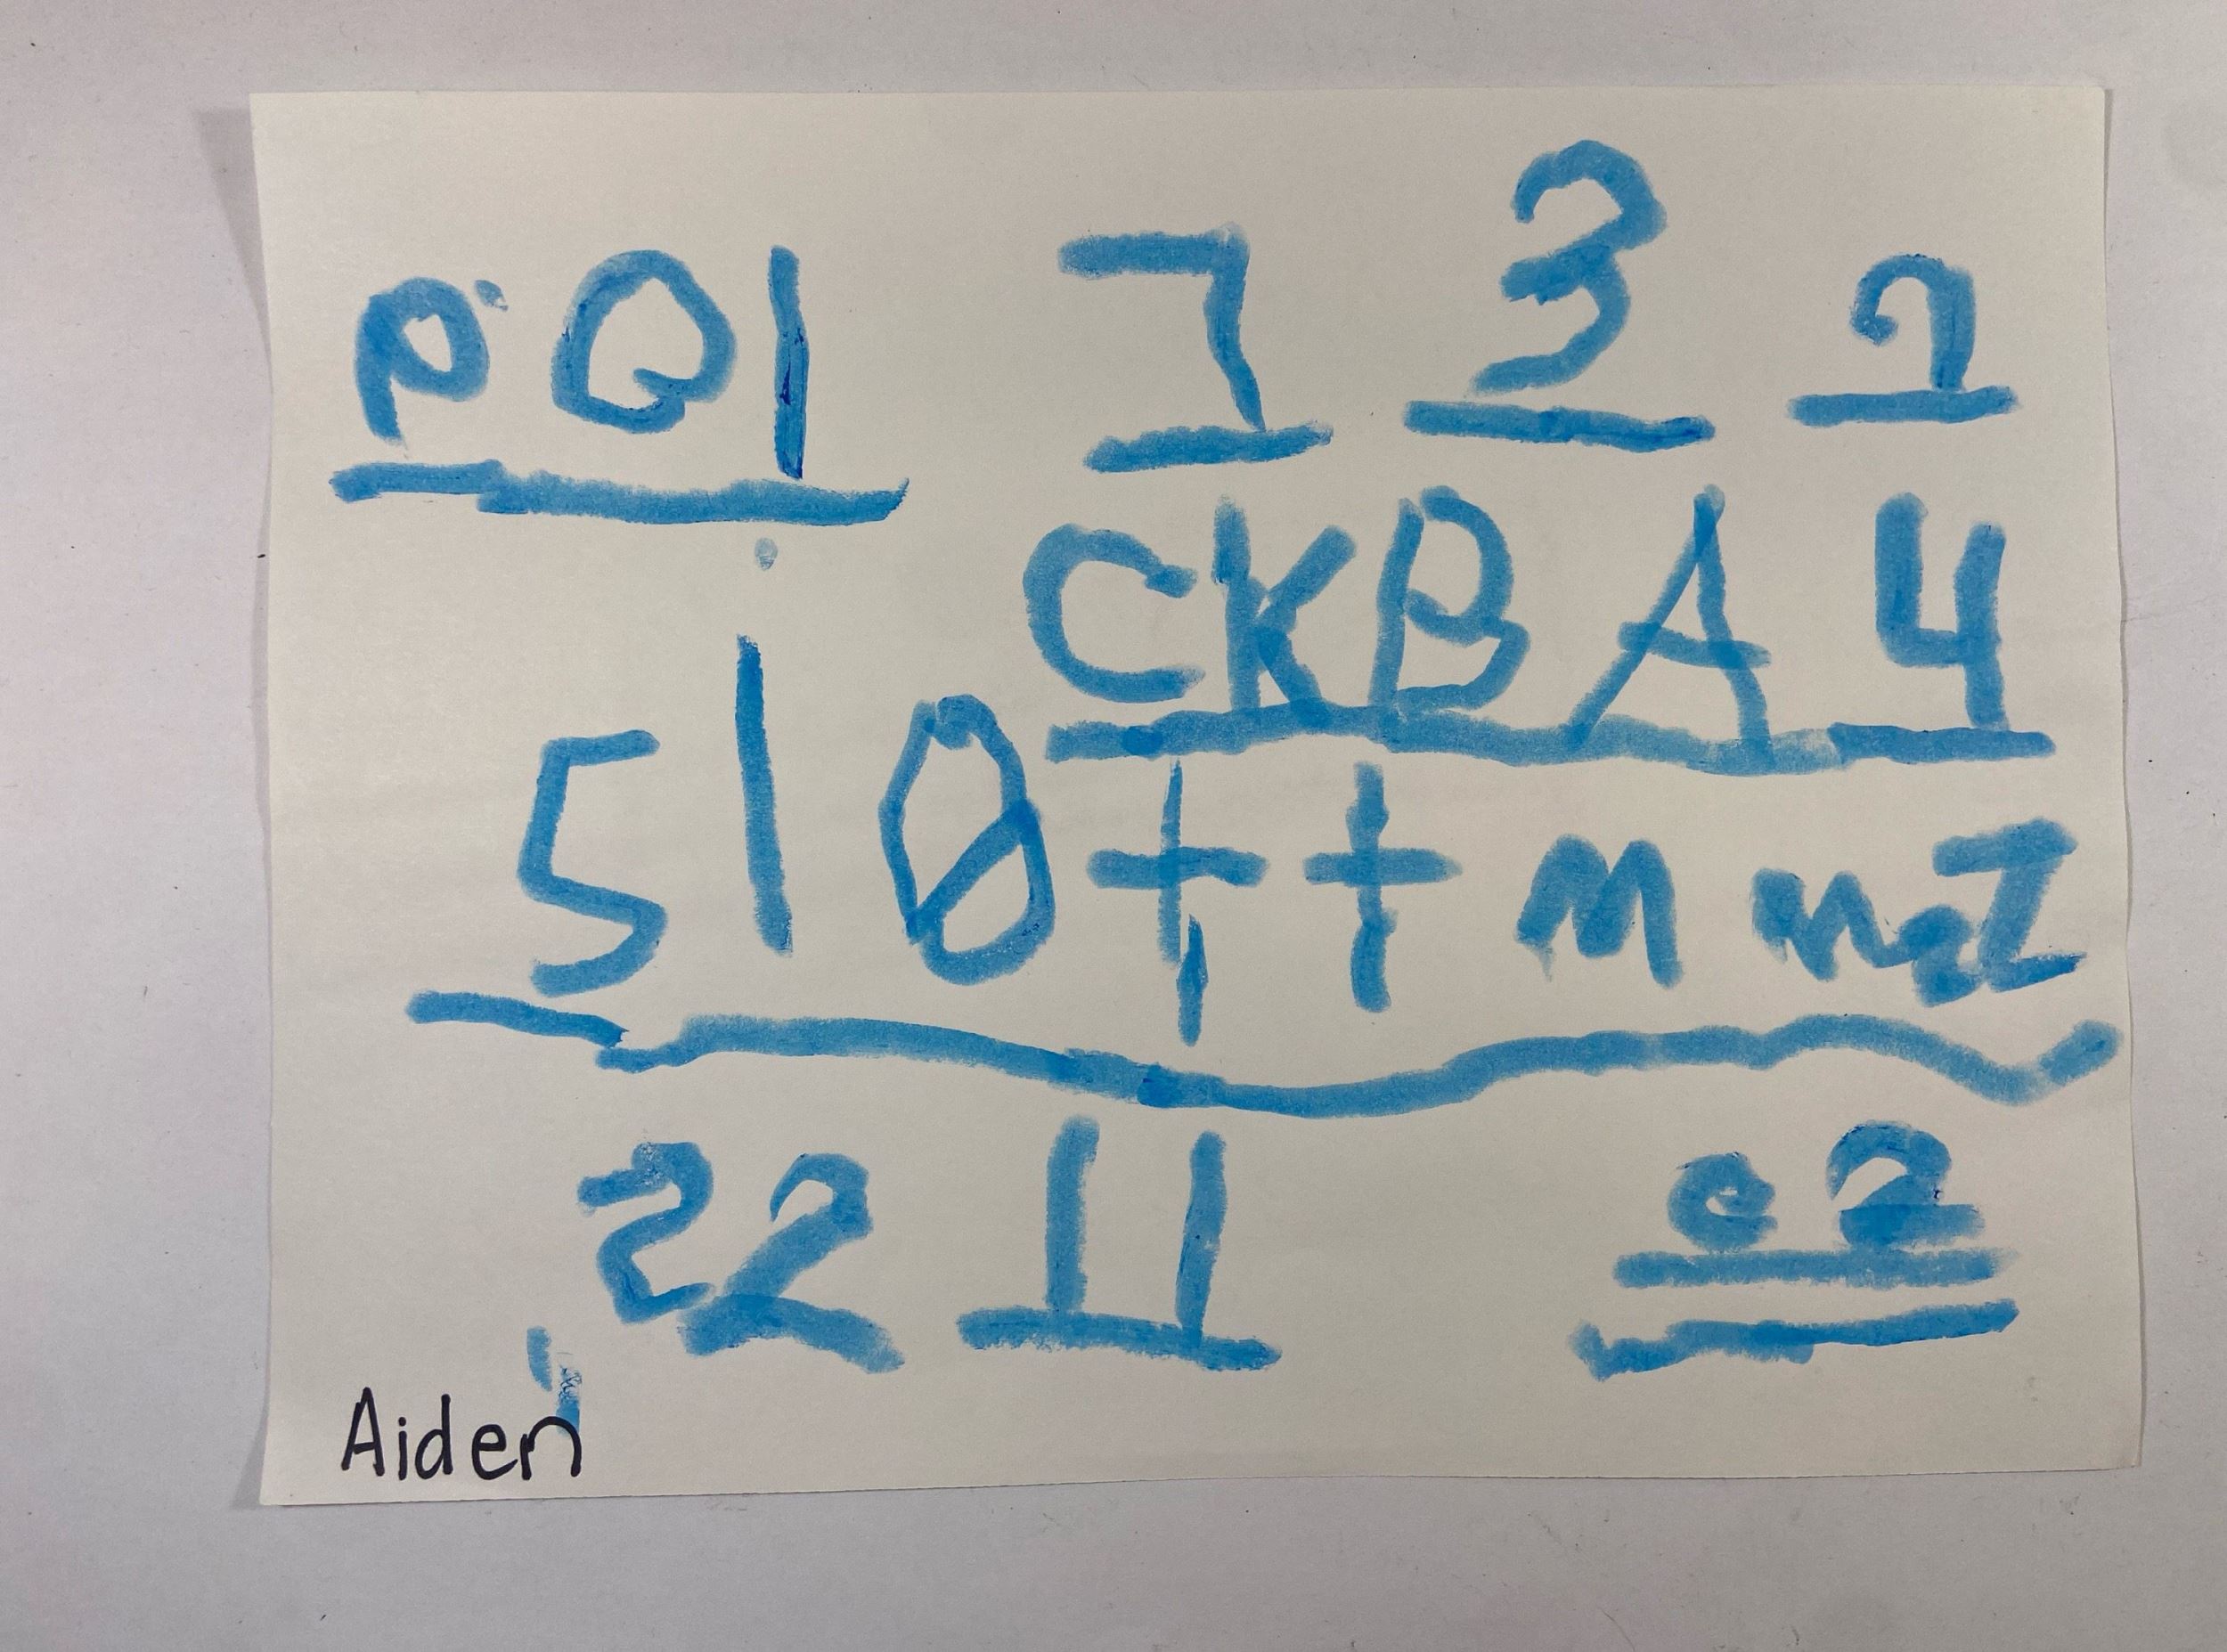 PQ1 7 3 2
CKBA 4
510 ttmmzZ
22 11 e2
Aiden